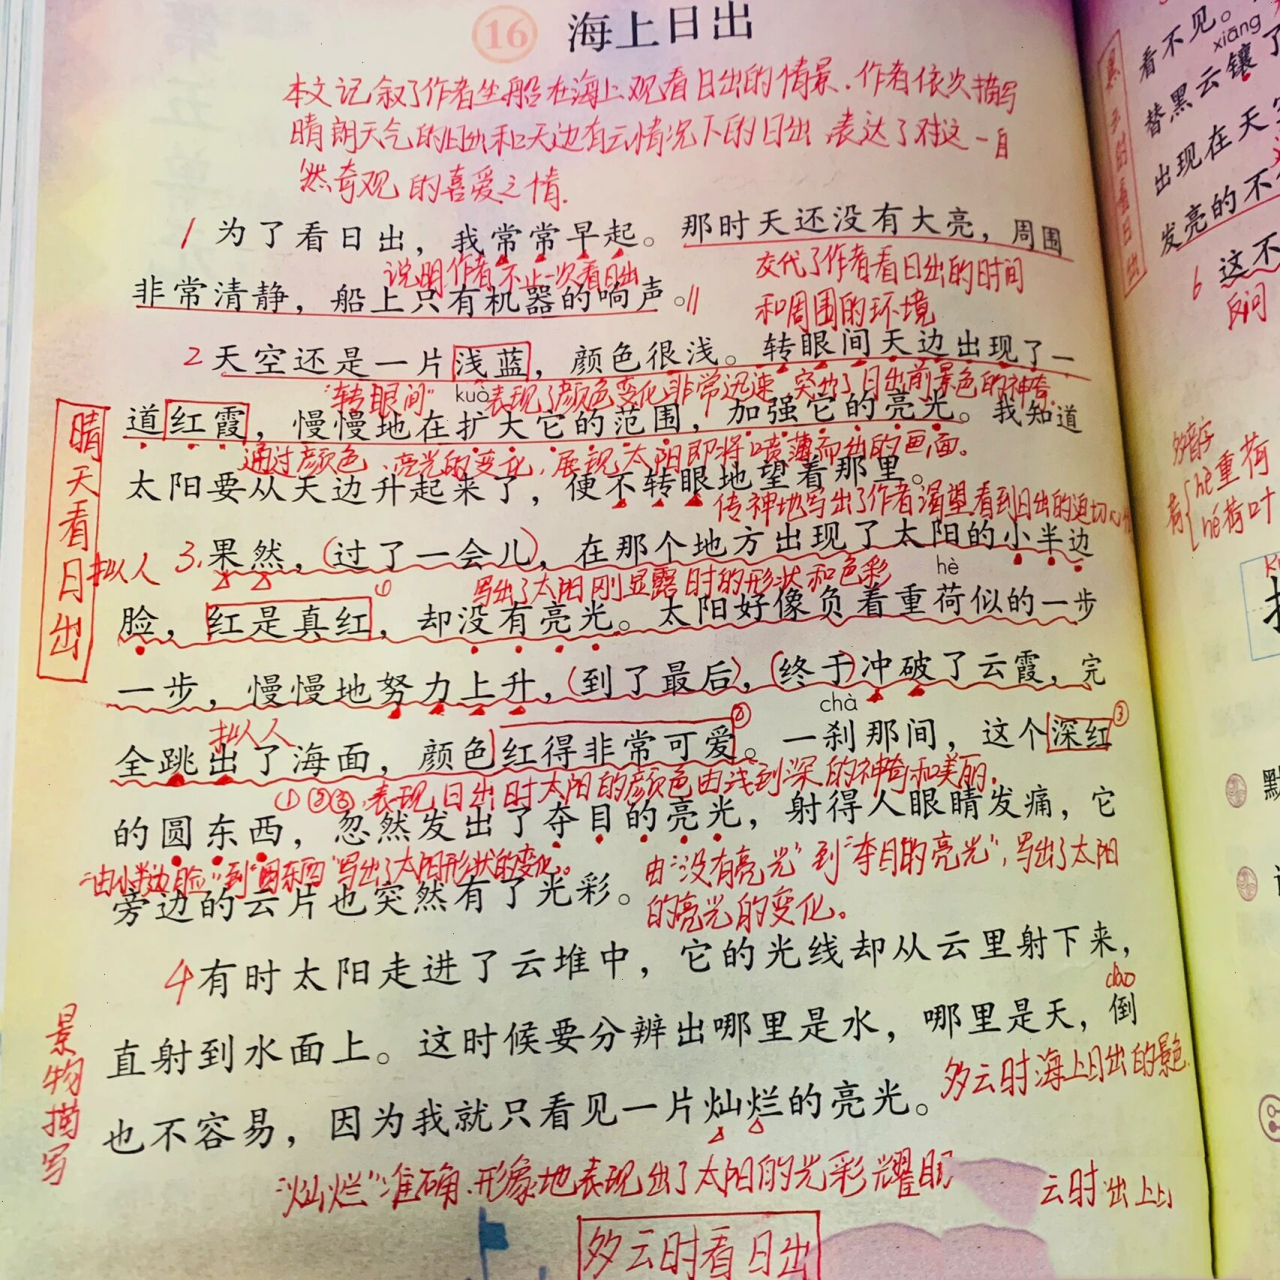 16 海上日出
本文记叙了作者坐船在海上观看日出的情景.作者依次描写
晴朗天气的日出和天边有云情况下的日出,表达了对这一自
然奇观的喜爱之情.
1 为了看日出，我常常早起。那时天还没有大亮，周围
说明作者不止一次看日出
交代了作者看日出的时间
和周围的环境
非常清静，船上只有机器的响声。
2 天空还是一片浅蓝，颜色很浅。转眼间天边出现了一
"转眼间"表现了颜色变化非常迅速,突出了日出前景色的神奇.
kuò
道红霞，慢慢地在扩大它的范围，加强它的亮光。我知道
通过颜色、亮光的变化,展现太阳即将喷薄而出的画面。
太阳要从天边升起来了，便不转眼地望着那里。
传神地写出了作者渴望看到日出的迫切心情
晴天看日出
拟人
3.果然，(过了一会儿)，在那个地方出现了太阳的小半边
写出了太阳刚显露时的形状和色彩
hè
脸，红是真红①，却没有亮光。太阳好像负着重荷似的一步
一步，慢慢地努力上升，(到了最后)，(终于)冲破了云霞，完
拟人
chà
全跳出了海面，颜色红得非常可爱②。一刹那间，这个深红③
①②③.表现日出时太阳的颜色由浅到深的神奇和美丽.
的圆东西，忽然发出了夺目的亮光，射得人眼睛发痛，它
"由小半边脸"到"圆东西"写出了太阳形状的变化。
由"没有亮光"到"夺目的亮光",写出了太阳
的亮光的变化。
旁边的云片也突然有了光彩。
4 有时太阳走进了云堆中，它的光线却从云里射下来，
dào
直射到水面上。这时候要分辨出哪里是水，哪里是天，倒
多云时海上日出的景色.
景物描写
也不容易，因为我就只看见一片灿烂的亮光。
"灿烂"准确.形象地表现出了太阳的光彩耀眼
多云时看日出
看不见。
xiāng
替黑云镶了
出现在天
发亮的不
6 这不
反问
多音字
荷{hè重荷
hé荷叶